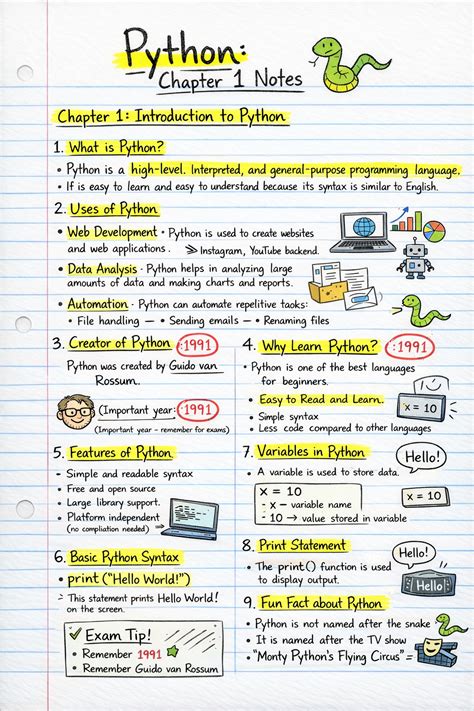 Python:
Chapter 1 Notes
Chapter 1: Introduction to Python
1. What is Python?
• Python is a high-level. Interpreted, and general-purpose programming language.
• If is easy to learn and easy to understand because its syntax is similar to English.
2. Uses of Python
• Web Development · Python is used to create websites
and web applications. ⪢ Instagram, YouTube backend.
• Data Analysis · Python helps in analyzing large
amounts of data and making charts and reports.
• Automation · Python can automate repelitive tasks:
• File handling — • Sending emails — • Renaming files
3. Creator of Python :1991
Python was created by Guido van
Rossum.
(Important year: :1991
(Important year – remember for exams)
4. Why Learn Python? :1991
• Python is one of the best languages
for beginners.
• Easy to Read and Learn.
• Simple syntax
• Less code compared to other languages
x = 10
5. Features of Python
- Simple and readable syntax
• Free and open source
• Large library support.
• Platform independent
(no compliation needed) →
7. Variables in Python
Hello!
• A variable is used to store data.
x = 10
- x – variable name
- 10 → value stored in variable
x = 10
6. Basic Python Syntax
• print ("Hello World!")
: This statement prints Hello World!
on the screen.
8. Print Statement
Hello!
• The print() function is used
to display output.
Hello
✓ Exam Tip!
• Remember 1991
• Remember Guido van Rossum
9. Fun Fact about Python
• Python is not named after the snake
• It is named after the TV show
• "Monty Python's Flying Circus" =